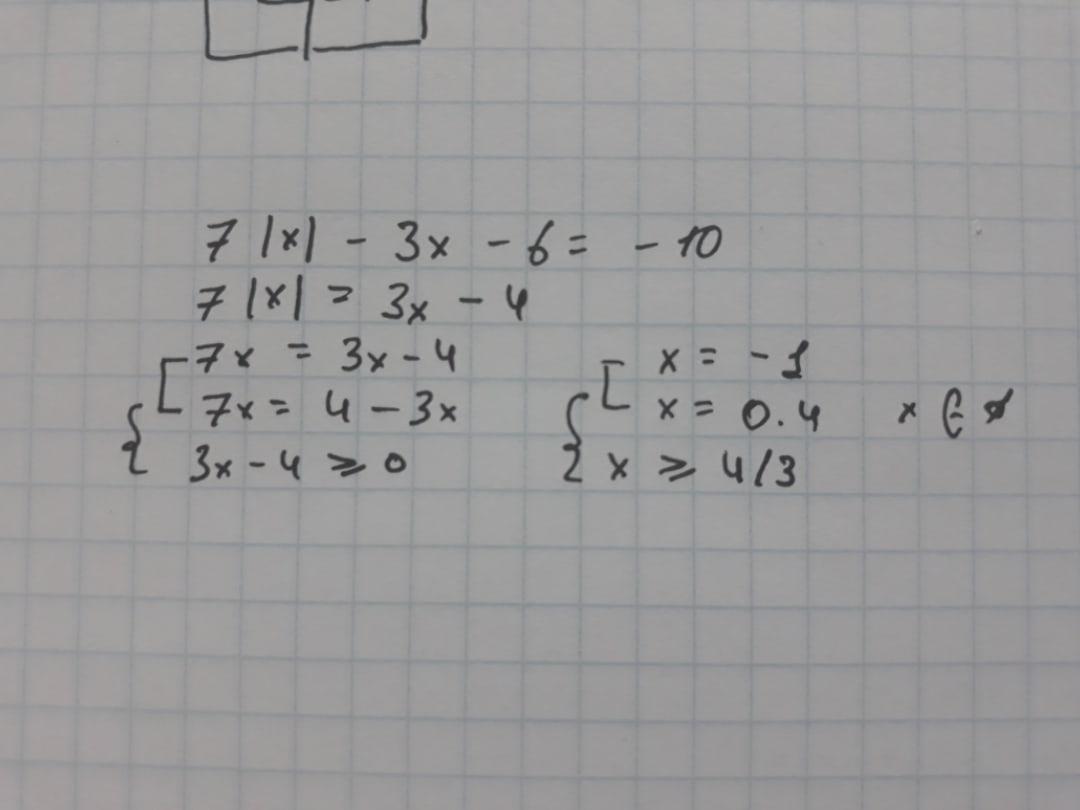 7 |x| - 3x - 6 = - 10
7 |x| = 3x - 4
{ [ 7x = 3x - 4
7x = 4 - 3x
3x - 4 ⩾ 0
{ [ x = - 1
x = 0.4
x ⩾ 4/3
x ∈ ∅